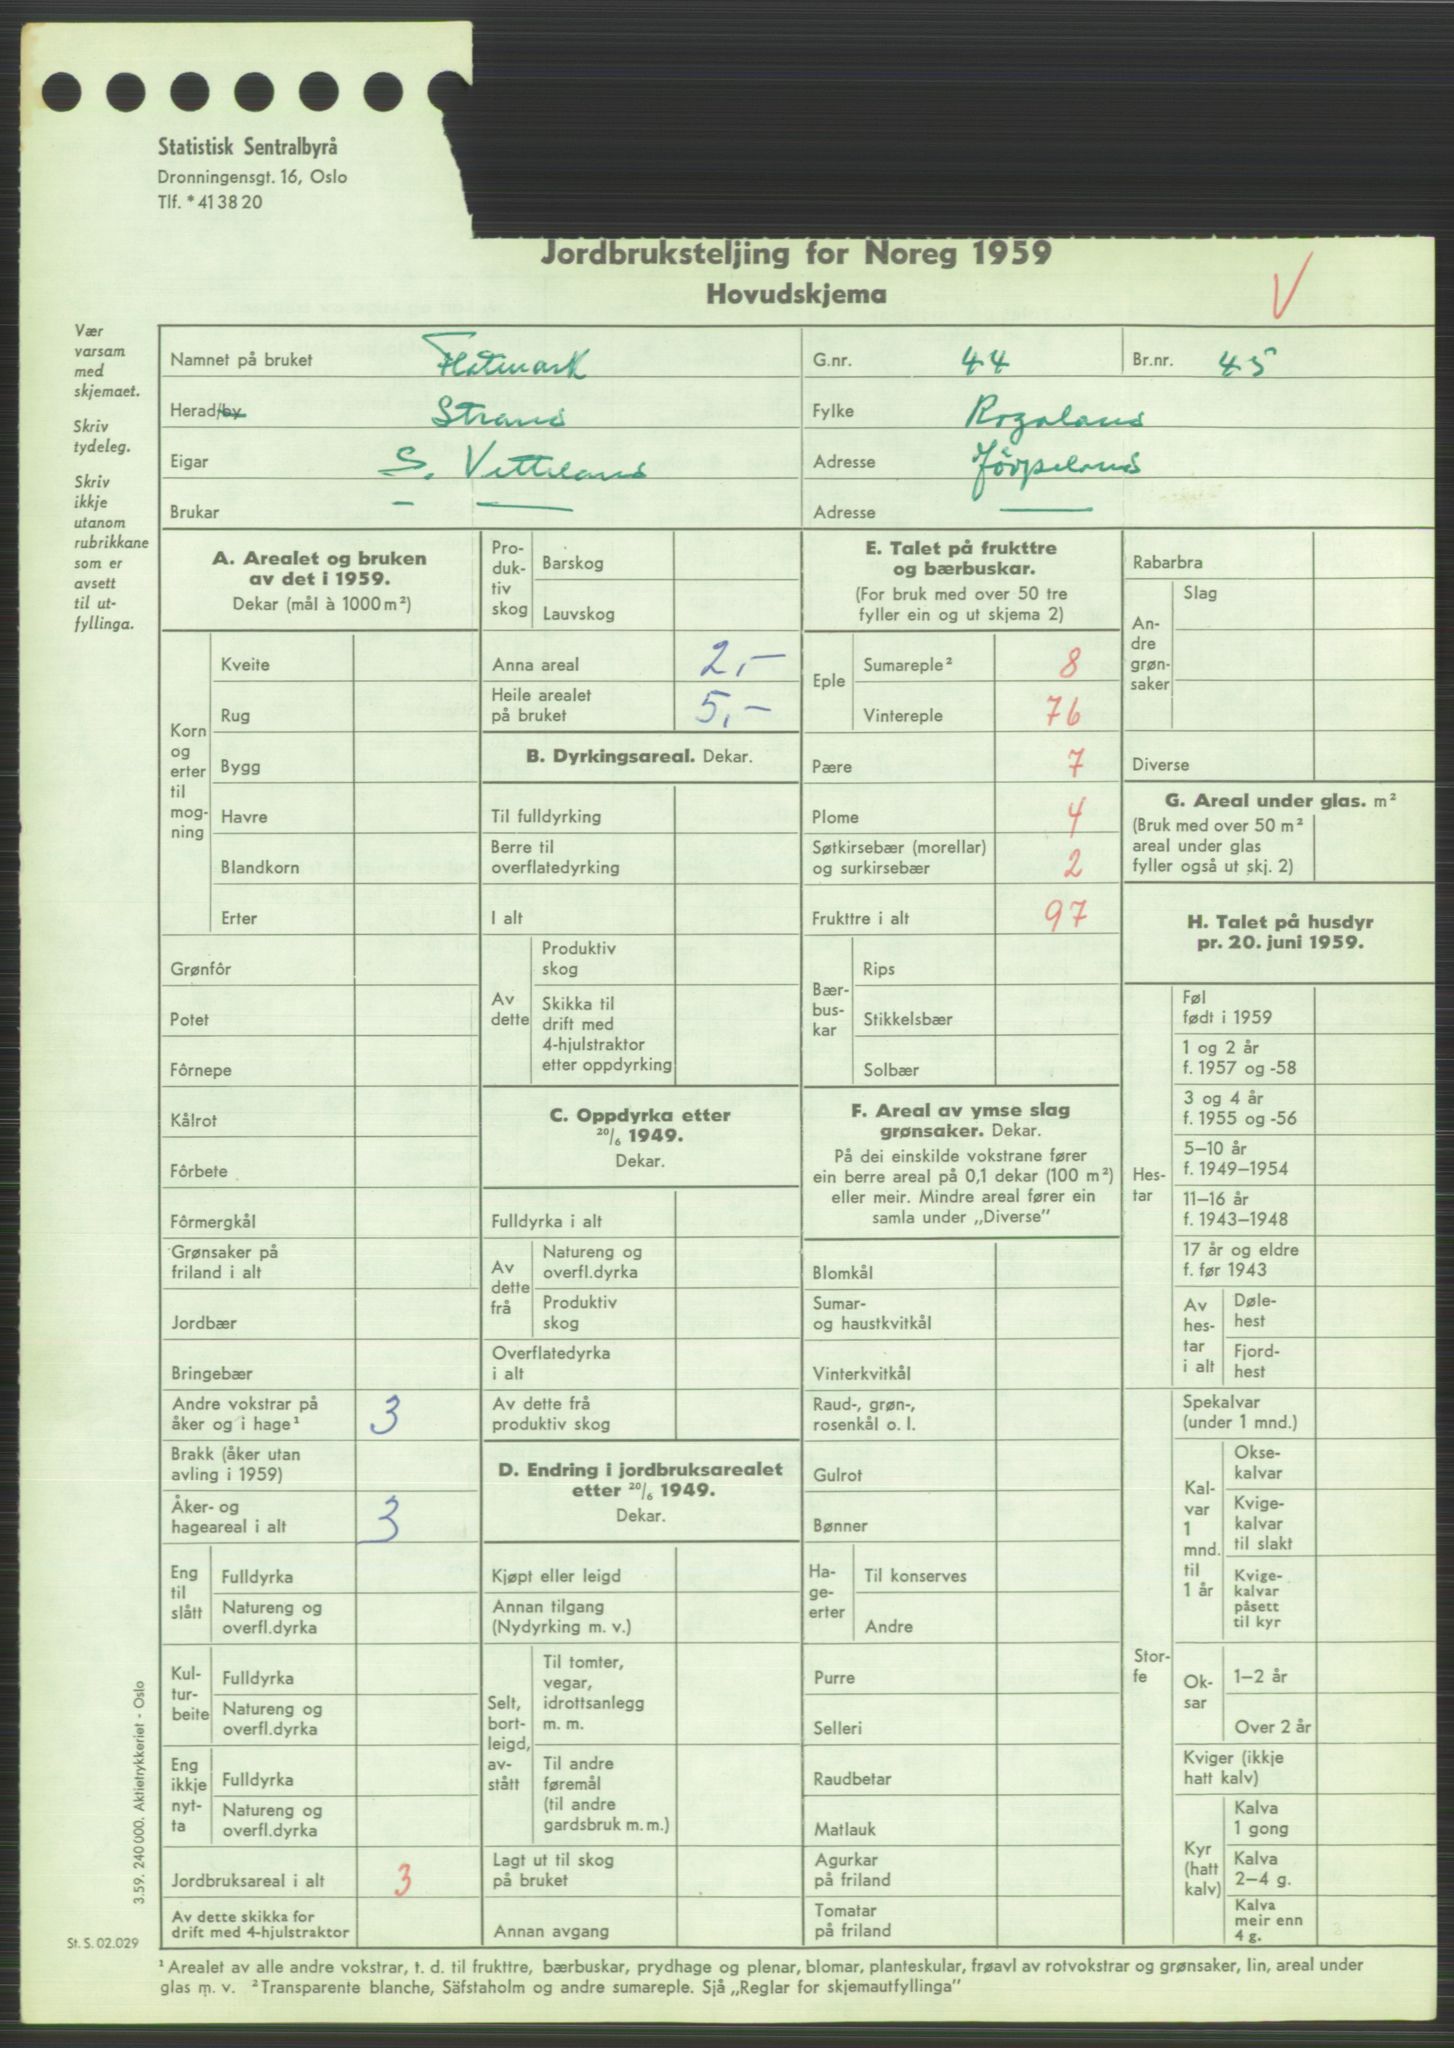 Statistisk Sentralbyrå
Dronningensgt. 16, Oslo
Tlf. * 41 38 20
Jordbruksteljing for Noreg 1959
Hovudskjema
V
Vær
varsam
med
skjemaet.
Skriv
tydeleg.
Skriv
ikkje
utanom
rubrikkane
som er
avsett
til ut-
fyllinga.
Namnet på bruket Flatmark G.nr. 44 Br.nr. 45
Herad/by Strand Fylke Rogaland
Eigar S. Vetteland Adresse Jörpeland
Brukar — — Adresse —
A. Arealet og bruken
av det i 1959.
Dekar (mål à 1000 m²)
Korn
og
erter
til
mog-
ning
Kveite
Rug
Bygg
Havre
Blandkorn
Erter
Grønfôr
Potet
Fôrnepe
Kålrot
Fôrbete
Fôrmergkål
Grønsaker på
friland i alt
Jordbær
Bringebær
Andre vokstrar på
åker og i hage¹ 3
Brakk (åker utan
avling i 1959)
Åker- og
hageareal i alt 3
Eng
til
slått
Fulldyrka
Natureng og
overfl.dyrka
Kul-
tur-
beite
Fulldyrka
Natureng og
overfl.dyrka
Eng
ikkje
nyt-
ta
Fulldyrka
Natureng og
overfl.dyrka
Jordbruksareal i alt 3
Av dette skikka for
drift med 4-hjulstraktor
Pro-
duk-
tiv
skog
Barskog
Lauvskog
Anna areal 2,—
Heile arealet
på bruket 5,—
B. Dyrkingsareal. Dekar.
Til fulldyrking
Berre til
overflatedyrking
I alt
Av
dette
Produktiv
skog
Skikka til
drift med
4-hjulstraktor
etter oppdyrking
C. Oppdyrka etter
20/6 1949.
Dekar.
Fulldyrka i alt
Av
dette
frå
Natureng og
overfl.dyrka
Produktiv
skog
Overflatedyrka
i alt
Av dette frå
produktiv skog
D. Endring i jordbruksarealet
etter 20/6 1949.
Dekar.
Kjøpt eller leigd
Annan tilgang
(Nydyrking m. v.)
Selt,
bort-
leigd,
av-
stått
Til tomter,
vegar,
idrottsanlegg
m. m.
Til andre
føremål
(til andre
gardsbruk m. m.)
Lagt ut til skog
på bruket
Annan avgang
E. Talet på frukttre
og bærbuskar.
(For bruk med over 50 tre
fyller ein og ut skjema 2)
Eple
Sumareple² 8
Vintereple 76
Pære 7
Plome 4
Søtkirsebær (morellar)
og surkirsebær 2
Frukttre i alt 97
Bær-
bus-
kar
Rips
Stikkelsbær
Solbær
F. Areal av ymse slag
grønsaker. Dekar.
På dei einskilde vokstrane fører
ein berre areal på 0,1 dekar (100 m²)
eller meir. Mindre areal fører ein
samla under „Diverse”
Blomkål
Sumar-
og haustkvitkål
Vinterkvitkål
Raud-, grøn-,
rosenkål o. l.
Gulrot
Bønner
Ha-
ge-
erter
Til konserves
Andre
Purre
Selleri
Raudbetar
Matlauk
Agurkar
på friland
Tomatar
på friland
Rabarbra
An-
dre
grøn-
saker
Slag
Diverse
G. Areal under glas. m²
(Bruk med over 50 m²
areal under glas
fyller også ut skj. 2)
H. Talet på husdyr
pr. 20. juni 1959.
Hes-
tar
Føl
født i 1959
1 og 2 år
f. 1957 og -58
3 og 4 år
f. 1955 og -56
5–10 år
f. 1949–1954
11–16 år
f. 1943–1948
17 år og eldre
f. før 1943
Av
hes-
tar
i alt
Døle-
hest
Fjord-
hest
Stor-
fe
Spekalvar
(under 1 mnd.)
Kal-
var
1
mnd.
til
1 år
Okse-
kalvar
Kvige-
kalvar
til slakt
Kvige-
kalvar
påsett
til kyr
Ok-
sar
1–2 år
Over 2 år
Kviger (ikkje
hatt kalv)
Kyr
(hatt
kalv)
Kalva
1 gong
Kalva
2–4 g.
Kalva
meir enn
4 g.
3.59. 240 000. Aktietrykkeriet - Oslo
St. S. 02.029
¹ Arealet av alle andre vokstrar, t. d. til frukttre, bærbuskar, prydhage og plenar, blomar, planteskular, frøavl av rotvokstrar og grønsaker, lin, areal under
glas m. v. ² Transparente blanche, Säfstaholm og andre sumareple. Sjå „Reglar for skjemautfyllinga”